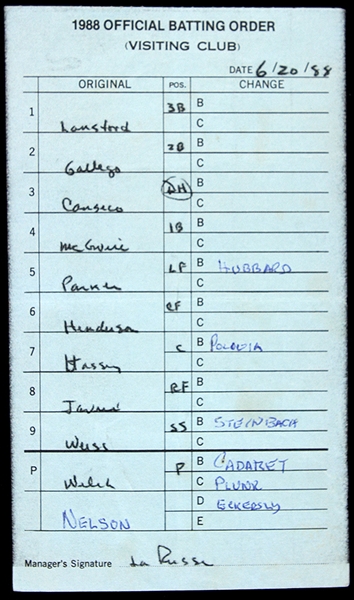 1988 OFFICIAL BATTING ORDER
(VISITING CLUB)
DATE 6/20/88
ORIGINAL POS. CHANGE
1 Lansford 3B B
C
2 Gallego 2B B
C
3 Canseco DH B
C
4 McGwire 1B B
C
5 Parker LF B HUBBARD
C
6 Henderson CF B
C
7 Hassey C B POLONIA
C
8 Javier RF B
C
9 Weiss SS B STEINBACH
C
P Welch P B CADARET
C PLUNK
D ECKERSLY
NELSON E
Manager's Signature La Russa